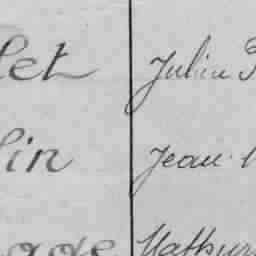 let Julien
lin Jean
Mathur